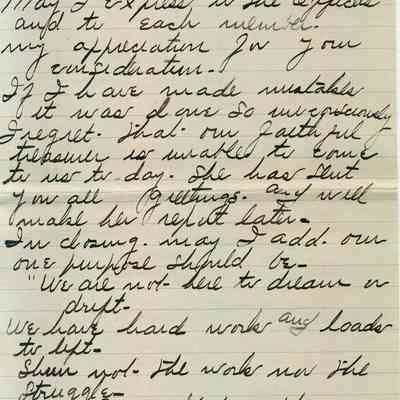 May I express to the officers
and to each member.
my appreciation for your
consideration.
If I have made mistakes
it was done so unconsciously
I regret. that our faithful
treasurer is unable to come
to us to day. She has sent
you all greetings. and will
make her report later.
In closing. may I add. our
one purpose should be-
"We are not here to dream or
drift-
We have hard work and loads
to lift-
Shun not the work nor the
struggle-